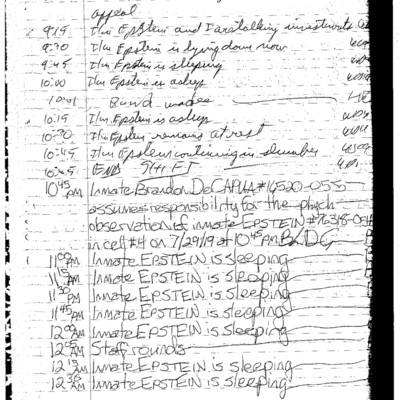 appeal
9:15 I/m Epstein and I are talking investments
9:30 I/m Epstein is lying down now
9:45 I/m Epstein is sleeping
10:00 I/m Epstein is asleep
10:01 Round made
10:15 I/m Epstein is asleep
10:30 I/m Epstein remains at rest
10:45 I/m Epstein continuing in slumber
10:45 END SHIFT
10:45 PM Inmate Brandon DeCAPUA #16520-055
assumes responsibility for the phych
observation of inmate EPSTEIN #76318-054
in cell #4 on 7/29/19 at 10:45 PM. BDC
11:00 PM Inmate EPSTEIN is sleeping
11:15 PM Inmate EPSTEIN is sleeping
11:30 PM Inmate EPSTEIN is sleeping
11:45 PM Inmate EPSTEIN is sleeping
12:00 AM Inmate EPSTEIN is sleeping
12:05 AM Staff rounds
12:15 AM Inmate EPSTEIN is sleeping
12:30 AM Inmate EPSTEIN is sleeping